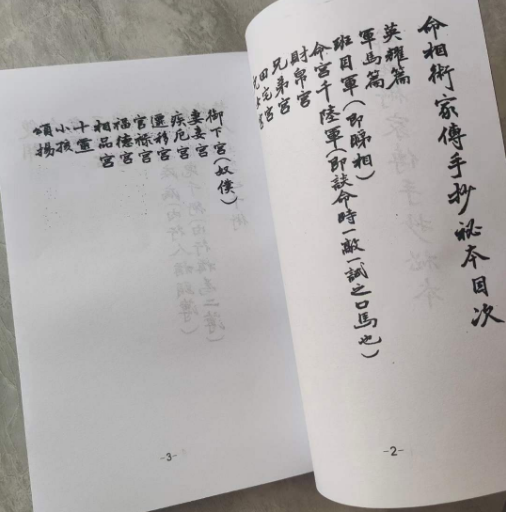 命相術家傳手抄秘本目次
英耀篇
軍馬篇
班目軍（即睇相）
命宮千陸軍（即談命時一敲一試之口馬也）
財帛宮
兄弟宮
田宅宮
宮
-2-
御下宮（奴僕）
妻妾宮
疾厄宮
遷移宮
官禄宮
福德宮
相品宮
十
小孩
頌揚
-3-